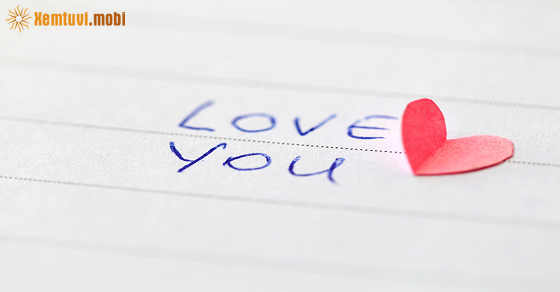 Xemtuvi.mobi
LOVE
YOU